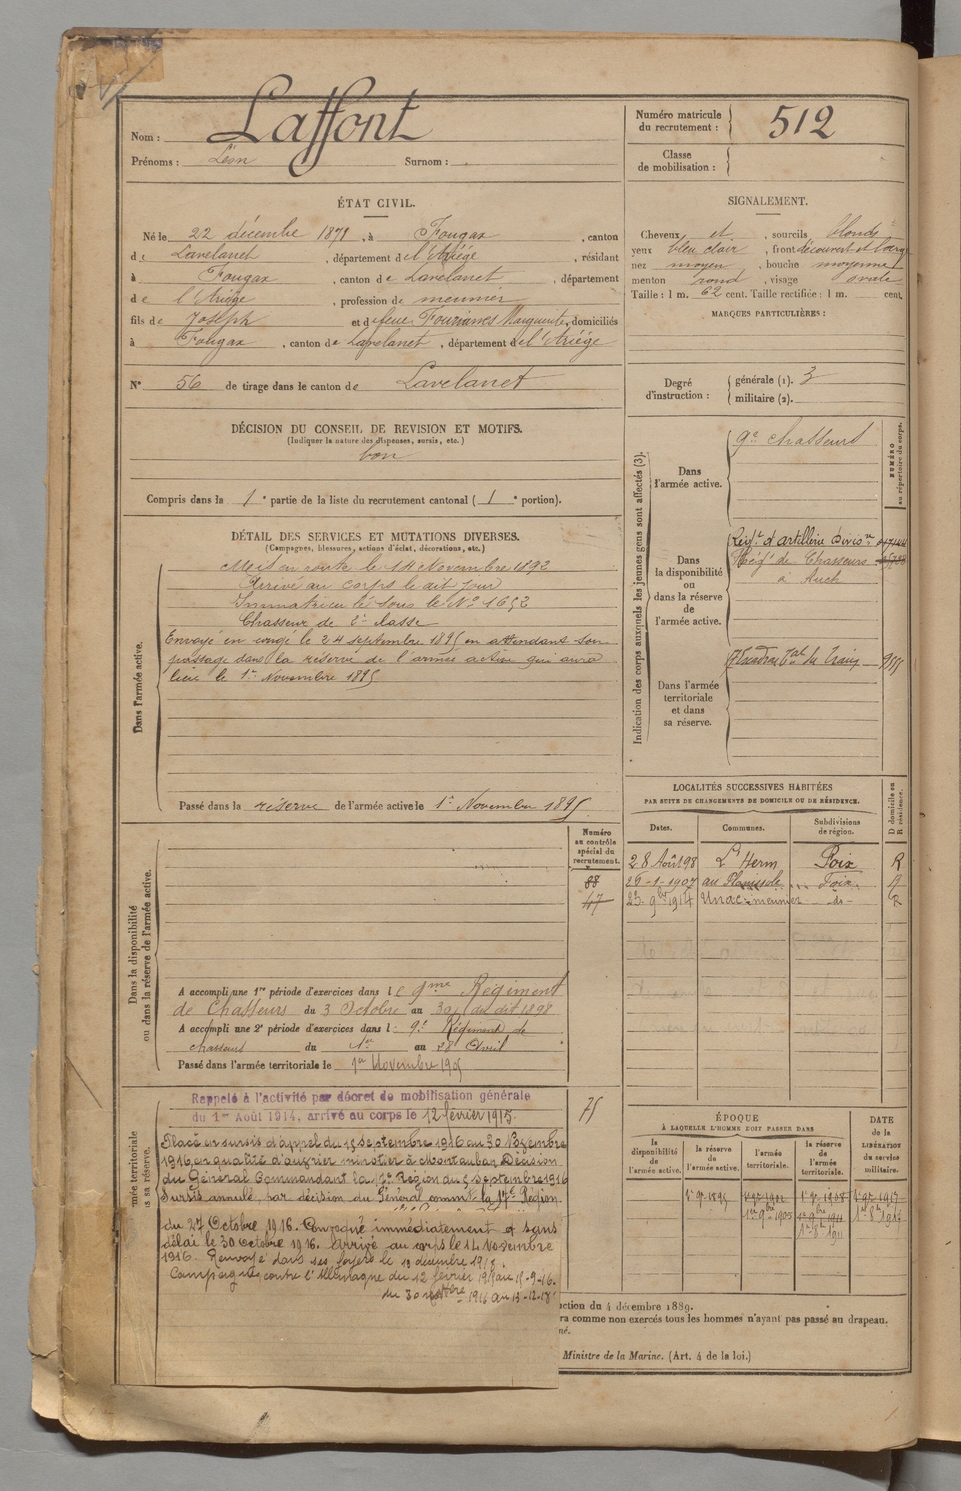 Nom : Laffont
Prénoms : Léon Surnom : .
Numéro matricule du recrutement : 512
Classe de mobilisation :
ÉTAT CIVIL.
Né le 22 décembre 1871, à Fougax, canton
de Lavelanet, département de l'Ariège, résidant
à Fougax, canton de Lavelanet, département
de l'Ariège, profession de meunier
fils de Joseph et de feue Marguerite, domiciliés
à Fougax, canton de Lavelanet, département de l'Ariége
N° 56 de tirage dans le canton de Lavelanet
SIGNALEMENT.
Cheveux et, sourcils blonds
yeux bleu clair, front découvert et large
nez moyen, bouche moyenne
menton rond, visage ovale
Taille : 1 m. 62 cent. Taille rectifiée : 1 m. cent.
MARQUES PARTICULIÈRES :
Degré d'instruction : générale (1). 3
militaire (2).
DÉCISION DU CONSEIL DE REVISION ET MOTIFS.
(Indiquer la nature des dispenses, sursis, etc.)
bon
Compris dans la 1e partie de la liste du recrutement cantonal (1e portion).
DÉTAIL DES SERVICES ET MUTATIONS DIVERSES.
(Campagnes, blessures, actions d'éclat, décorations, etc.)
Dans l'armée active.
Mis en route le 14 Novembre 1892
Arrivé au corps le dit jour
Immatriculé sous le N° 1652
Chasseur de 2e classe
Envoyé en congé le 24 septembre 1895 en attendant son
passage dans la réserve de l'armée active qui aura
lieu le 1er Novembre 1895
Passé dans la réserve de l'armée active le 1er Novembre 1895
Indication des corps auxquels les jeunes gens sont affectés (3).
NUMÉRO au répertoire du corps.
Dans l'armée active.
9e chasseurs
Dans la disponibilité ou dans la réserve de l'armée active.
Regt d'artillerie
Régt de Chasseurs
à Auch
Dans l'armée territoriale et dans sa réserve.
du Train
LOCALITÉS SUCCESSIVES HABITÉES
PAR SUITE DE CHANGEMENTS DE DOMICILE OU DE RÉSIDENCE.
Dates. Communes. Subdivisions de région. D domicile ou R résidence.
28 Août 98 L'Herm Foix R
26-1-1907 au Foix R
23 9bre 1914 Unac meunier -d- R
Dans la disponibilité ou dans la réserve de l'armée active.
Numéro au contrôle spécial du recrutement.
88
47
A accompli une 1re période d'exercices dans le 9me Régiment
de Chasseurs du 3 Octobre au 30 du dit 1898
A accompli une 2e période d'exercices dans le 9e Régiment de
chasseurs du 1er au 28 Avril
Passé dans l'armée territoriale le 1er Novembre 1905
Rappelé à l'activité par décret de mobilisation générale
du 1er Août 1914, arrivé au corps le 12 février 1915.
75
Placé en sursis d'appel du 15 septembre 1916 au 30 Novembre
1916, en qualité d'ouvrier minotier à Montauban, Décision
du Général Commandant la 17e Région du 5 septembre 1916
Sursis annulé par décision du Général commt la 17e Région
du 27 Octobre 1916. Convoqué immédiatement et sans
délai le 30 Octobre 1916. Arrivé au corps le 14 Novembre
1916. Renvoyé dans ses foyers le 13 décembre 1918.
Campagnes contre l'Allemagne du 12 février 1915 au 15-9-16.
du 30 1916 au 13-12-18
ÉPOQUE
À LAQUELLE L'HOMME DOIT PASSER DANS
la disponibilité de l'armée active. la réserve de l'armée active. l'armée territoriale. la réserve de l'armée territoriale.
DATE de la LIBÉRATION du service militaire.
1er 9bre 1895
1er 9bre 1905
ction du 4 décembre 1889.
ra comme non exercés tous les hommes n'ayant pas passé au drapeau.
né.
Ministre de la Marine. (Art. 4 de la loi.)